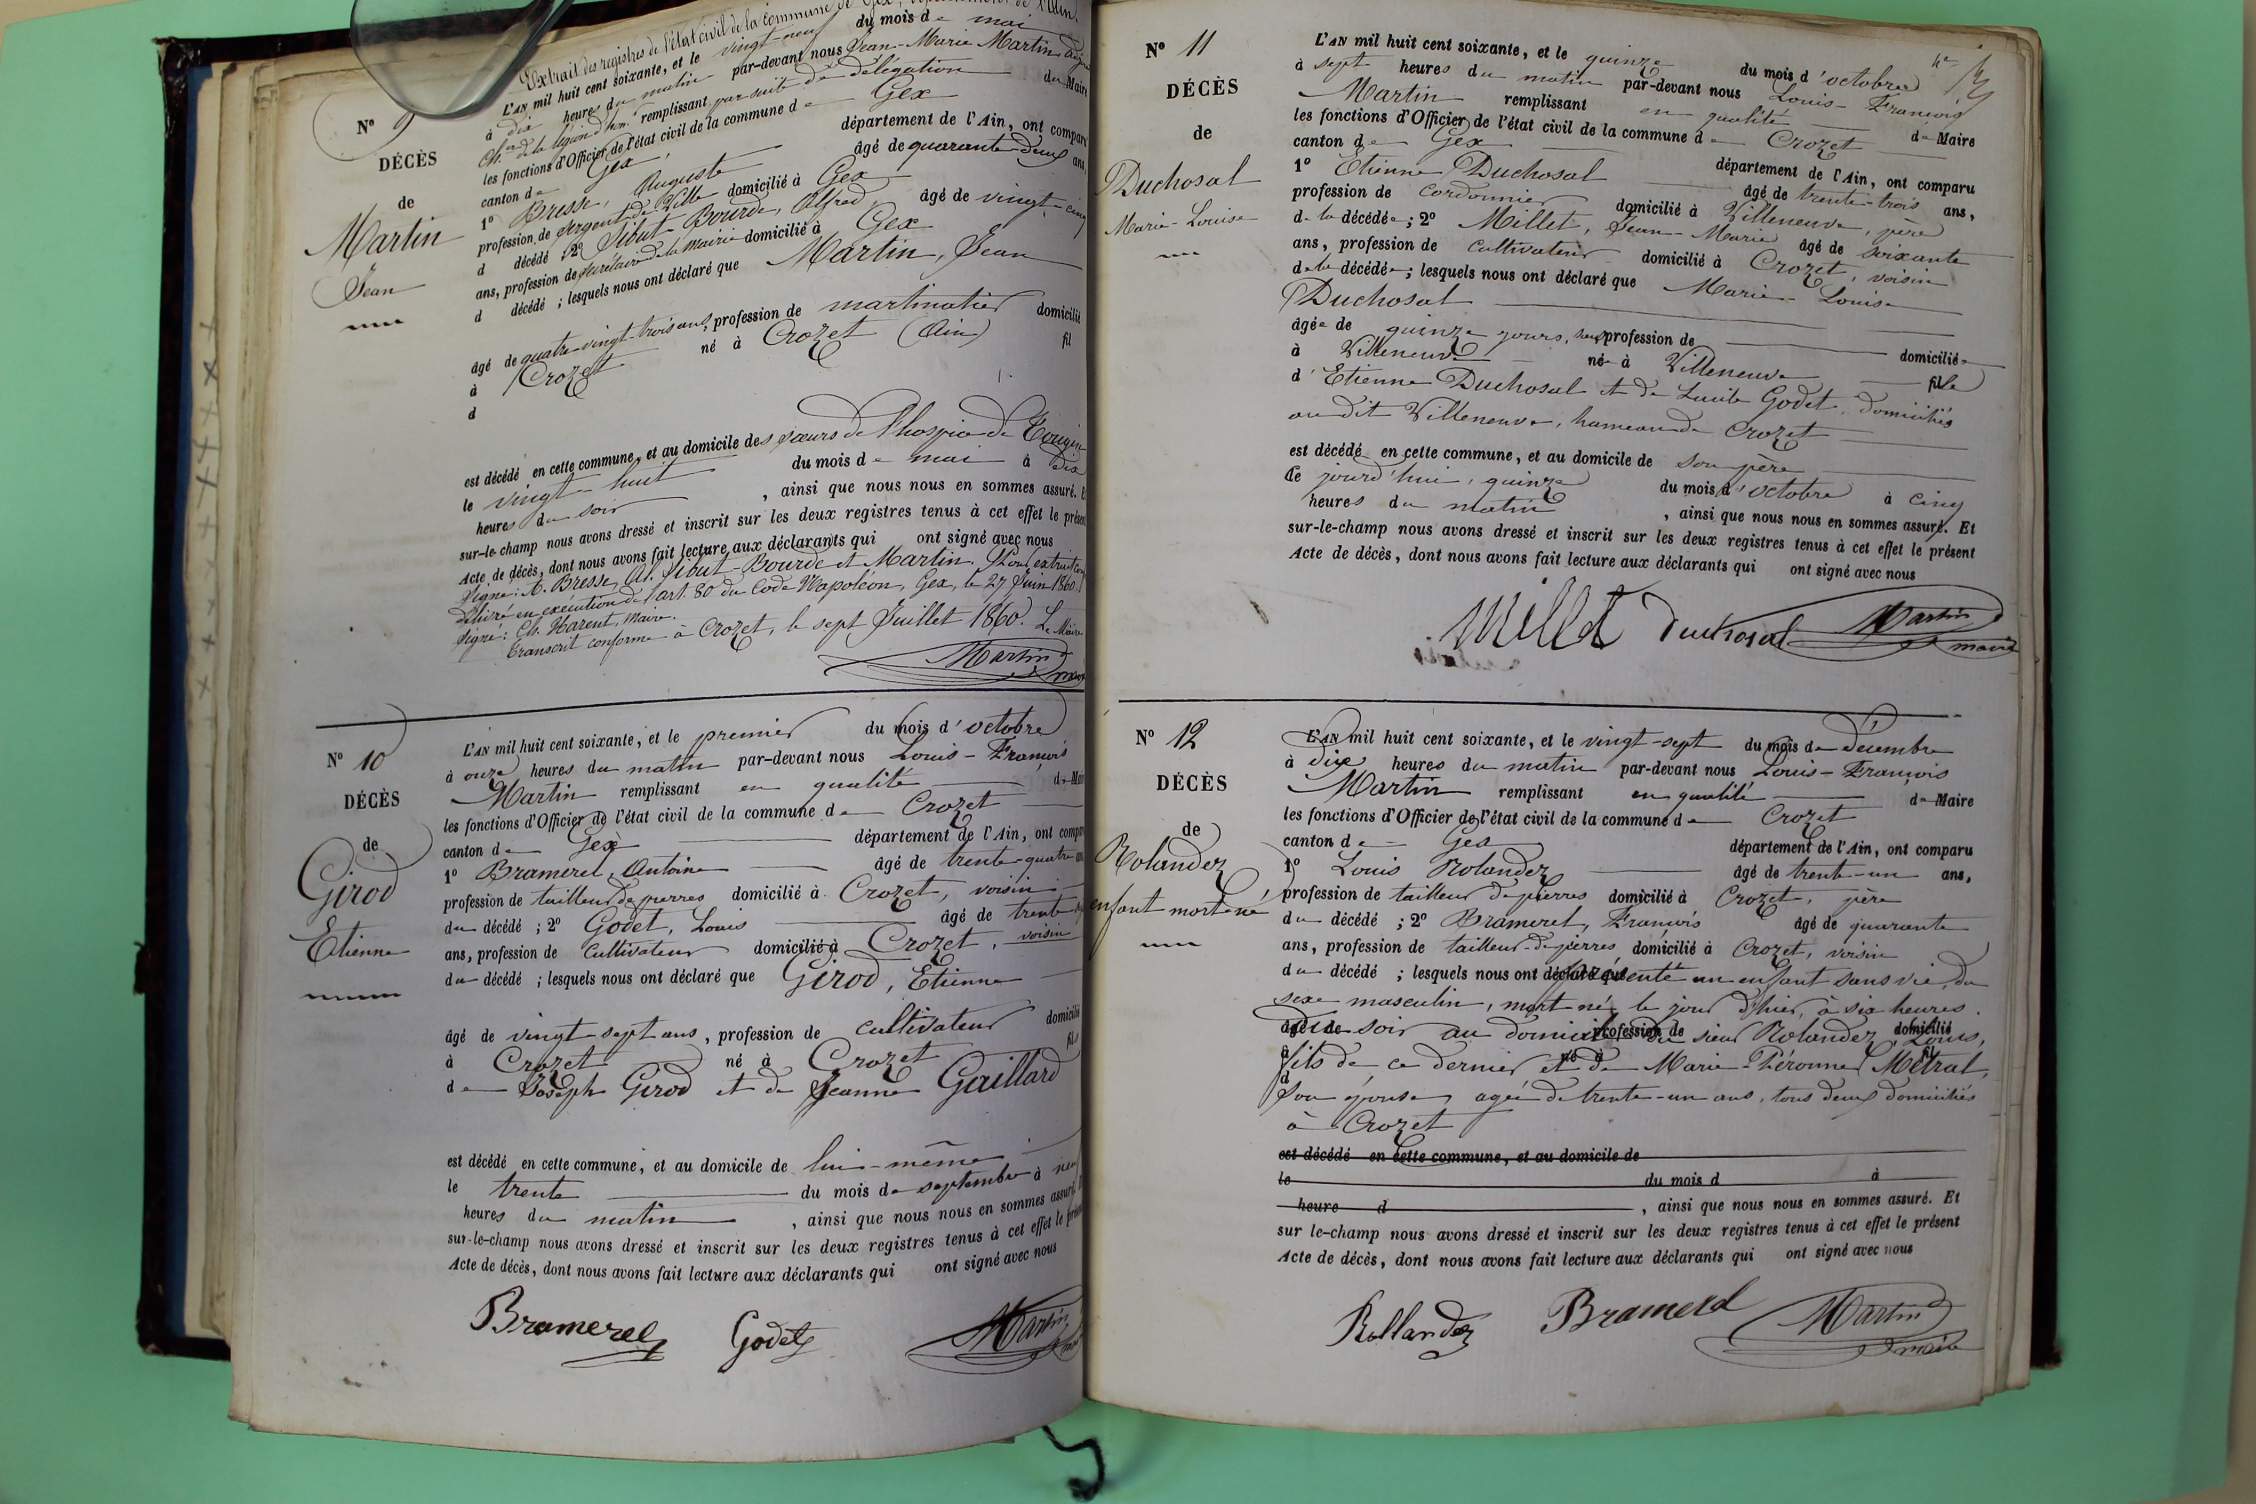 Extrait des registres de l'état civil de la commune de Gex, département de l'Ain.
N° 9
DÉCÈS
de
Martin
Jean
L'AN mil huit cent soixante, et le vingt-neuf du mois de mai
à dix heures du matin par-devant nous Jean-Marie Martin
Ch.er de la légion d'hon.r remplissant par suite de délégation de Maire
les fonctions d'Officier de l'état civil de la commune de Gex
canton de Gex département de l'Ain, ont comparu
1° Bresse, Auguste âgé de quarante-deux ans,
profession de sergent de ville domicilié à Gex
d décédé ; 2° Sibut-Bourde, Alfred, âgé de vingt-cinq
ans, profession de secrétaire de la mairie domicilié à Gex
d décédé ; lesquels nous ont déclaré que Martin, Jean
âgé de quatre-vingt-trois ans, profession de martinatier domicilié
à Crozet né à Crozet (Ain) fil
d
est décédé en cette commune, et au domicile des sœurs de l'hospice de Tougin
le vingt-huit du mois de mai à dix
heures du soir , ainsi que nous nous en sommes assuré. Et
sur-le-champ nous avons dressé et inscrit sur les deux registres tenus à cet effet le présent
Acte de décès, dont nous avons fait lecture aux déclarants qui ont signé avec nous
Signé : A. Bresse, Al. Sibut-Bourde et Martin. Pour extrait
délivré en exécution de l'art. 80 du Code Napoléon, Gex, le 27 Juin 1860.
Signé : Ch. Harent, Maire.
Transcrit conforme à Crozet, le sept Juillet 1860. Le Maire
Martin
maire
N° 10
DÉCÈS
de
Girod
Etienne
L'AN mil huit cent soixante, et le premier du mois d'octobre
à onze heures du matin par-devant nous Louis-François
Martin remplissant en qualité de Maire
les fonctions d'Officier de l'état civil de la commune de Crozet
canton de Gex département de l'Ain, ont comparu
1° Bramerel, Antoine âgé de trente-quatre ans
profession de tailleur de pierres domicilié à Crozet, voisin
du décédé ; 2° Godet, Louis âgé de trente
ans, profession de cultivateur domicilié à Crozet, voisin
du décédé ; lesquels nous ont déclaré que Girod, Etienne
âgé de vingt-sept ans, profession de cultivateur domicilié
à Crozet né à Crozet fils
de Joseph Girod et de Jeanne Gaillard
est décédé en cette commune, et au domicile de lui-même
le trente du mois de septembre à neuf
heures du matin , ainsi que nous nous en sommes assuré. Et
sur-le-champ nous avons dressé et inscrit sur les deux registres tenus à cet effet le présent
Acte de décès, dont nous avons fait lecture aux déclarants qui ont signé avec nous
Bramerel Godet Martin
N° 11
DÉCÈS
de
Duchosal
Marie-Louise
L'AN mil huit cent soixante, et le quinze du mois d'octobre
à sept heures du matin par-devant nous Louis-François
Martin remplissant en qualité de Maire
les fonctions d'Officier de l'état civil de la commune de Crozet
canton de Gex département de l'Ain, ont comparu
1° Etienne Duchosal âgé de trente-trois ans,
profession de cordonnier domicilié à Villeneuve, père
de la décédée ; 2° Millet, Jean-Marie âgé de soixante
ans, profession de cultivateur domicilié à Crozet, voisin
de la décédée ; lesquels nous ont déclaré que Marie-Louise
Duchosal
âgée de quinze jours, sans profession de domiciliée
à Villeneuve née à Villeneuve fille
d'Etienne Duchosal et de Lucile Godet, domiciliés
au dit Villeneuve, hameau de Crozet
est décédé en cette commune, et au domicile de son père
Ce jourd'hui, quinze du mois d'octobre à cinq
heures du matin , ainsi que nous nous en sommes assuré. Et
sur-le-champ nous avons dressé et inscrit sur les deux registres tenus à cet effet le présent
Acte de décès, dont nous avons fait lecture aux déclarants qui ont signé avec nous
Millet Duchosal Martin
maire
N° 12
DÉCÈS
de
Rolandez
enfant mort-né
L'AN mil huit cent soixante, et le vingt-sept du mois de décembre
à dix heures du matin par-devant nous Louis-François
Martin remplissant en qualité de Maire
les fonctions d'Officier de l'état civil de la commune de Crozet
canton de Gex département de l'Ain, ont comparu
1° Louis Rolandez âgé de trente-un ans,
profession de tailleur de pierres domicilié à Crozet, père
du décédé ; 2° Bramerel, François âgé de quarante
ans, profession de tailleur de pierres domicilié à Crozet, voisin
du décédé ; lesquels nous ont déclaré que présenté un enfant sans vie, du
sexe masculin, mort-né, le jour d'hier, à six heures
âgé de du soir au domicile profession de du sieur Rolandez, domicilié Louis,
à fils de ce dernier né à et de Marie-Péronne fil Métral,
d son épouse, agée de trente-un ans, tous deux domiciliés
à Crozet
est décédé en cette commune, et au domicile de
le du mois d à
heure d , ainsi que nous nous en sommes assuré. Et
sur le-champ nous avons dressé et inscrit sur les deux registres tenus à cet effet le présent
Acte de décès, dont nous avons fait lecture aux déclarants qui ont signé avec nous
Rollandez Bramerel Martin
maire